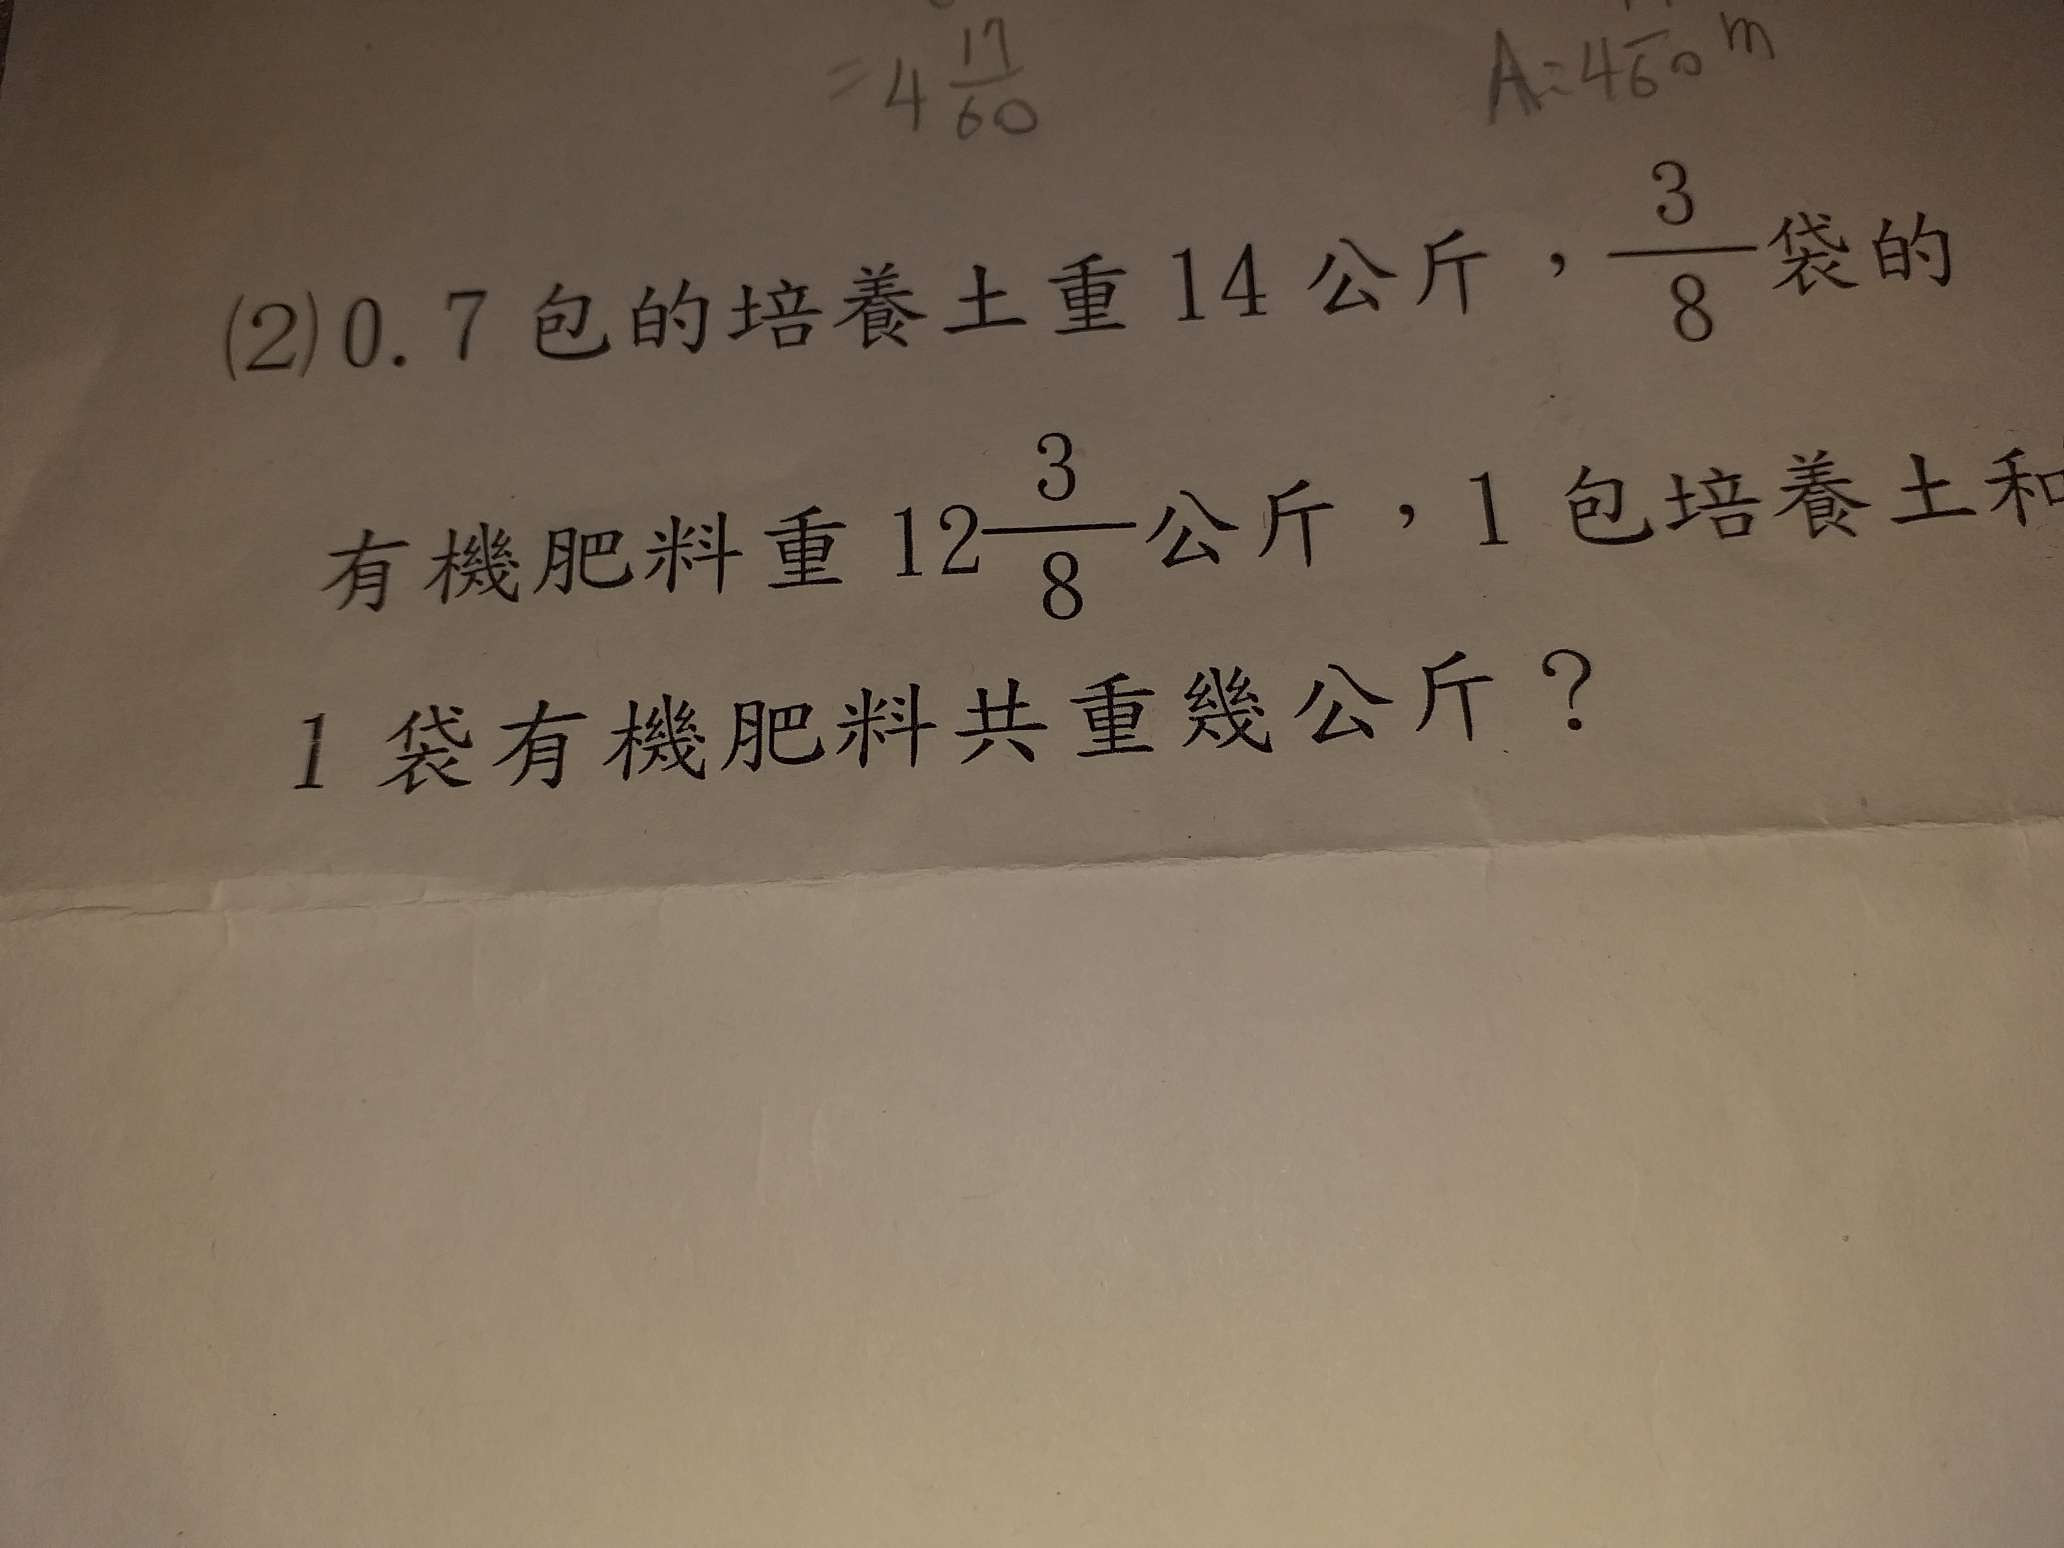 = 4 17/60
A: 4 17/60 m
(2) 0.7 包的培養土重 14 公斤，3/8 袋的
有機肥料重 12 3/8 公斤，1 包培養土和
1 袋有機肥料共重幾公斤？